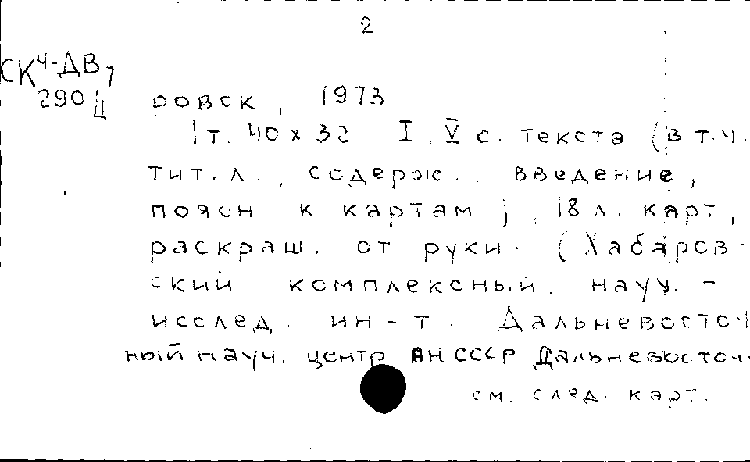 2
СК4-ДВ
290
ровск, 1973
1т. 40х32 I, V с. текста (в т.ч.
тит. л., содерж., введение,
поясн к картам), 18 л. карт,
раскраш. от руки. (Хабаров-
ский комплексный. науч.-
исслед. ин-т. Дальневосточ
ный науч. центр АН СССР Дальневосточ
см. след. карт.